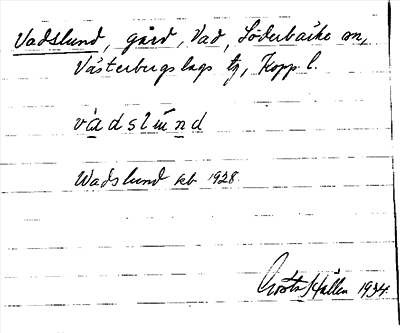 Vadslund, gård, Vad, Söderbärke sn,
Västerbergslags tg, Kopp l.
vàdslùnd
Wadslund kb 1928.
Gösta Hallén 1934.